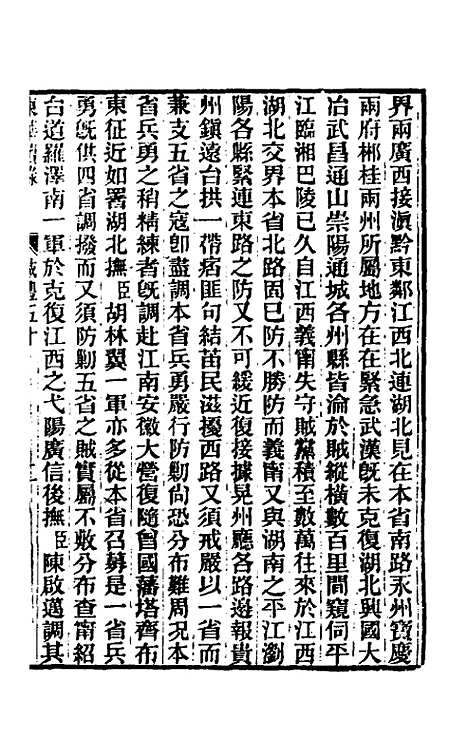 界兩廣西接滇黔東鄰江西北連湖北見在本省南路永州寶慶
兩府郴桂兩州所屬地方在在緊急武漢旣未克復湖北興國大
冶武昌通山崇陽通城各州縣皆淪於賊縱橫數百里間窺伺平
江臨湘巴陵已久自江西義甯失守賊黨積至數萬往來於江西
湖北交界本省北路固已防不勝防而義甯又與湖南之平江瀏
陽各縣緊連東路之防又不可緩近復接據晃州廳各路邊報貴
州鎭遠台拱一帶痞匪句結苗民滋擾西路又須戒嚴以一省而
兼支五省之寇卽盡調本省兵勇嚴行防勦尙恐分布難周況本
省兵勇之稍精練者旣調赴江南安徽大營復隨曾國藩塔齊布
東征近如署湖北撫臣胡林翼一軍亦多從本省召募是一省兵
勇旣供四省調撥而又須防勦五省之賊實屬不敷分布查甯紹
台道羅澤南一軍於克復江西之弋陽廣信後撫臣陳啟邁調其
東華續錄 咸豐五十